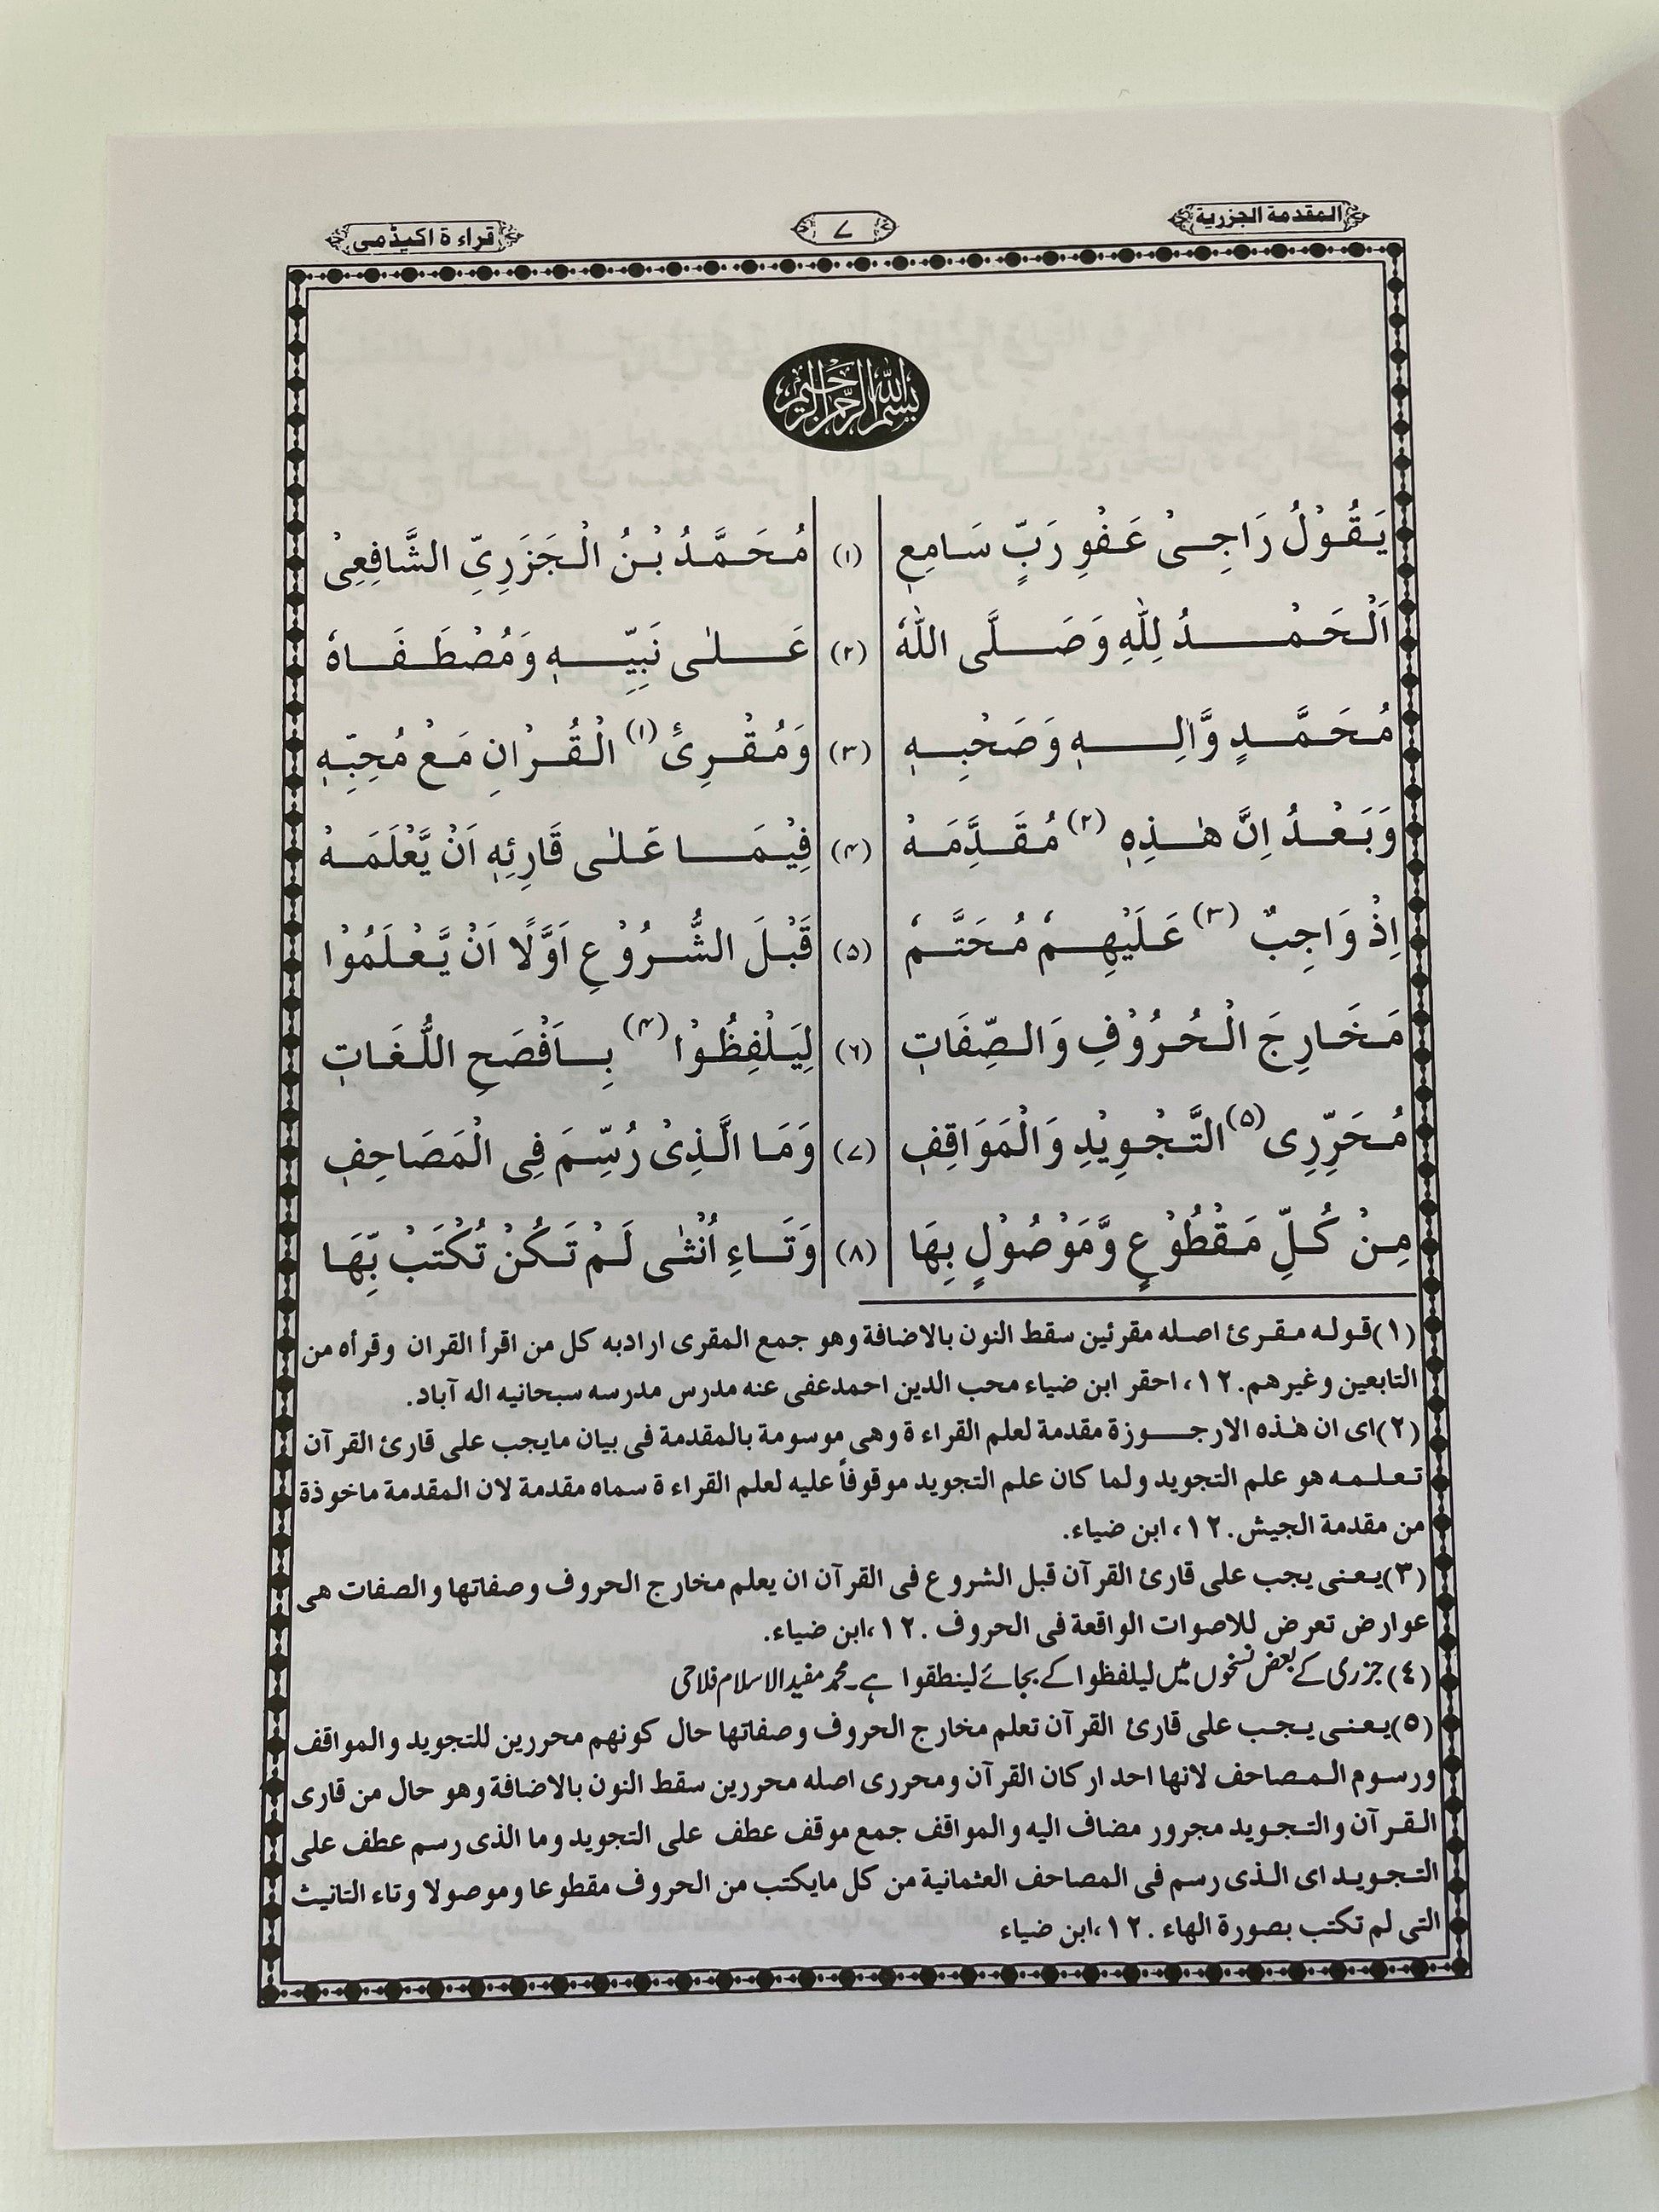 المقدمة الجزرية
٧
قراءة اكيڈمى
بسم الله الرحمن الرحيم
يَقُوْلُ رَاجِىْ عَفْوِ رَبٍّ سَامِعٖ (١) مُحَمَّدُ بْنُ الْجَزَرِىِّ الشَّافِعِىْ
اَلْحَمْدُ لِلّٰهِ وَصَلَّى اللّٰهُ (٢) عَلٰى نَبِيِّهٖ وَمُصْطَفَاهُ
مُحَمَّدٍ وَّاٰلِهٖ وَصَحْبِهٖ (٣) وَمُقْرِئِ (١) الْقُرْاٰنِ مَعْ مُحِبِّهٖ
وَبَعْدُ اِنَّ هٰذِهٖ (٢) مُقَدِّمَهْ (٤) فِيْمَا عَلٰى قَارِئِهٖ اَنْ يَّعْلَمَهْ
اِذْ وَاجِبٌ (٣) عَلَيْهِمُ مُحَتَّمُ (٥) قَبْلَ الشُّرُوْعِ اَوَّلًا اَنْ يَّعْلَمُوْا
مَخَارِجَ الْحُرُوْفِ وَالصِّفَاتِ (٦) لِيَلْفِظُوْا (٤) بِاَفْصَحِ اللُّغَاتِ
مُحَرِّرِى (٥) التَّجْوِيْدِ وَالْمَوَاقِفِ (٧) وَمَا الَّذِىْ رُسِّمَ فِى الْمَصَاحِفِ
مِنْ كُلِّ مَقْطُوْعٍ وَّمَوْصُوْلٍ بِهَا (٨) وَتَاءِ اُنْثٰى لَمْ تَكُنْ تُكْتَبْ بِّهَا
(١) قوله مقرئ اصله مقرئين سقط النون بالاضافة وهو جمع المقرى ارادبه كل من اقرأ القران وقرأه من
التابعين وغيرهم. ١٢، احقر ابن ضياء محب الدين احمدعفى عنه مدرس مدرسه سبحانيه اله آباد.
(٢) اى ان هٰذه الارجوزة مقدمة لعلم القراءة وهى موسومة بالمقدمة فى بيان مايجب على قارئ القرآن
تعلمه هو علم التجويد ولما كان علم التجويد موقوفاً عليه لعلم القراءة سماه مقدمة لان المقدمة ماخوذة
من مقدمة الجيش. ١٢، ابن ضياء.
(٣) يعنى يجب على قارئ القرآن قبل الشروع فى القرآن ان يعلم مخارج الحروف وصفاتها والصفات هى
عوارض تعرض للاصوات الواقعة فى الحروف. ١٢،ابن ضياء.
(٤) جزری کے بعض نسخوں میں لیلفظوا کے بجائے لینطقوا ہے۔ محمد مفید الاسلام فلاحی
(٥) يعنى يجب على قارئ القرآن تعلم مخارج الحروف وصفاتها حال كونهم محررين للتجويد والمواقف
ورسوم المصاحف لانها احد اركان القرآن ومحررى اصله محررين سقط النون بالاضافة وهو حال من قارى
القرآن والتجويد مجرور مضاف اليه والمواقف جمع موقف عطف على التجويد وما الذى رسم عطف على
التجويد اى الذى رسم فى المصاحف العثمانية من كل مايكتب من الحروف مقطوعا وموصولا وتاء التانيث
التى لم تكتب بصورة الهاء. ١٢،ابن ضياء